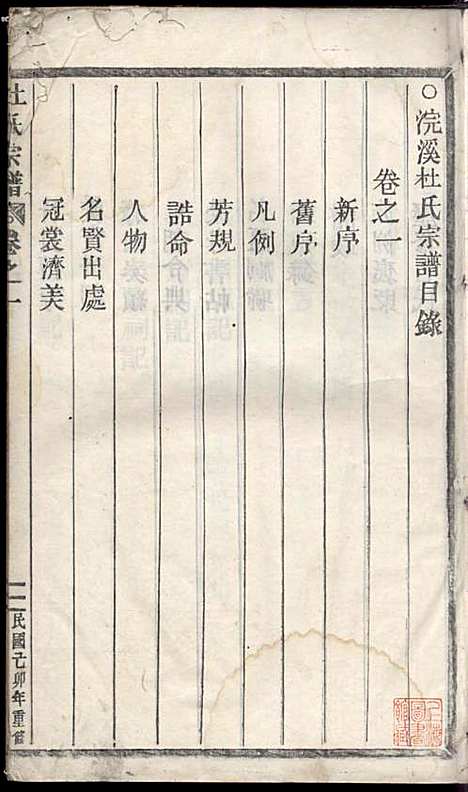 ○浣溪杜氏宗譜目錄
卷之一
新序
舊序
凡例
芳規
誥命
人物
名賢出處
冠裳濟美
杜氏宗譜
卷之一
一
民國己卯年重修
上海圖書館藏